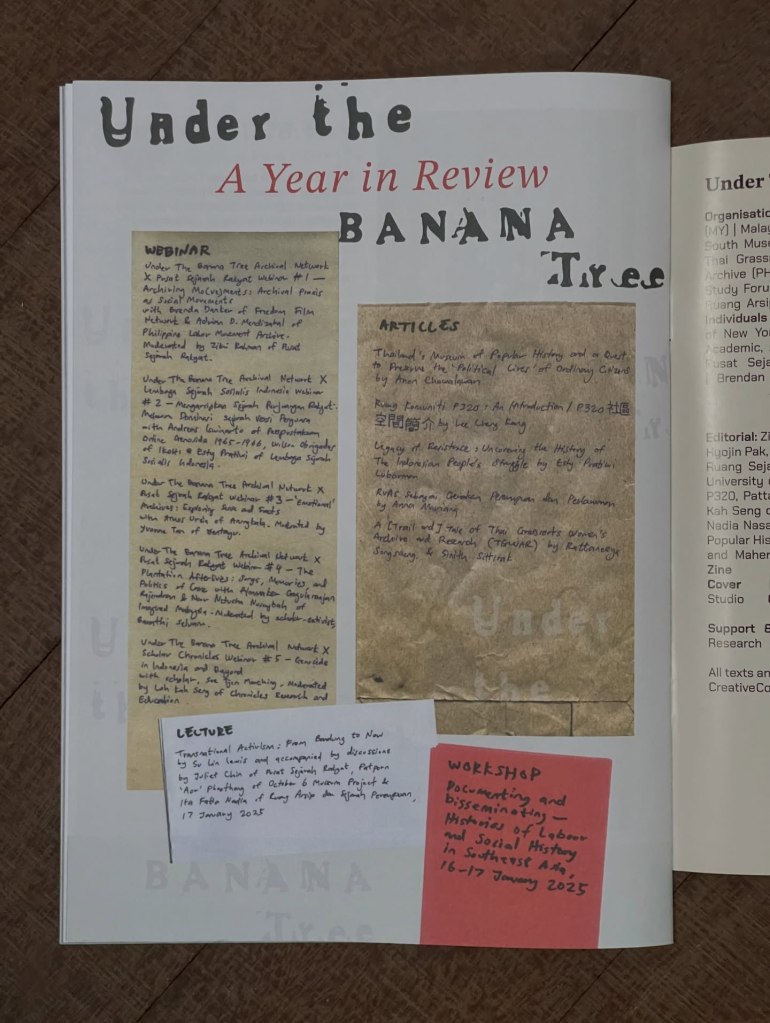 Under the
A Year in Review
BANANA
Tree
WEBINAR
Under The Banana Tree Archival Network
X Pusat Sejarah Rakyat Webinar #1 —
Archiving Mo(ve)ments: Archival Praxis
as Social Movements
with Brenda Danker of Freedom Film
Network & Adrian D. Mendizabal of
Philippine Labor Movement Archive.
Moderated by Zikri Rahman of Pusat
Sejarah Rakyat.
Under The Banana Tree Archival Network X
Lembaga Sejarah Sosialis Indonesia Webinar
#2 — Mengarsipkan Sejarah Perjuangan Rakyat:
Sejarah Versi Penguasa
with Andreas Iswinarto of Perpustakaan
Online Genosida 1965-1966, Wilson Obrigados
of & Esty Pratiwi of Lembaga Sejarah
Sosialis Indonesia.
Under The Banana Tree Archival Network X
Pusat Sejarah Rakyat Webinar #3 — 'Emotional'
Archives: Exploring and
with of Moderated by
Yvonne Tan of
Under The Banana Tree Archival Network X
Pusat Sejarah Rakyat Webinar #4 — The
Plantation Afterlives: Songs, Memories, and
Politics of Care with
Rajendran & of
Imagined Malaysia. Moderated by scholar-activist,
Under The Banana Tree Archival Network X
Scholar Chronicles Webinar #5 — Genocide
in Indonesia and Beyond
with scholar, Soe Tjen Marching. Moderated
by Loh Kah Seng of Chronicles Research and
Education.
ARTICLES
Thailand's Museum of Popular History and a Quest
to Preserve the 'Political Lives' of Ordinary Citizens
by Anon Chawalawan
Ruang Komuniti P320: An Introduction / P320 社區
空間簡介 by Lee Cheng Kang
Legacy of Resistance: Uncovering the History of
The Indonesian People's Struggle by Esty Pratiwi
Lubarman
RUAS Sebagai Gerakan Perempuan dan Perburuhan
by Anna
A [Trail and] Tale of Thai Grassroots Women's
Archive and Research (TGWAR) by Rattanaary
& Sinith Sittirak
LECTURE
Transnational Activism: From Bandung to Now
by Su Lin Lewis and accompanied by discussions
by Juliet Chin of Pusat Sejarah Rakyat, Patporn
'Aor' Phoothong of October 6 Museum Project &
Ita Fatia Nadia of Ruang Arsip dan Sejarah Perempuan,
17 January 2025
WORKSHOP
Documenting and
Disseminating —
Histories of Labour
and Social History
in Southeast Asia,
16-17 January 2025
Under
Organisatio
(MY) | Malay
South Muse
Thai Grass
Archive (PH
Study Forum
Ruang Arsip
Individuals
of New York
Academic,
Pusat Seja
Brendan
Editorial: Zi
Hyojin Pak,
Ruang Seja
University o
P320, Patta
Kah Seng o
Nadia Nasa
Popular His
and Maher
Zine
Cover
Studio
Support &
Research
All texts an
CreativeCo